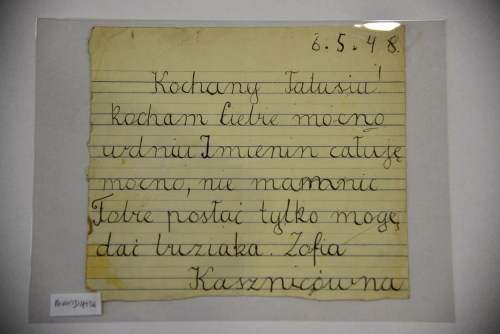 6.5.48.
Kochany Tatusiu!
kocham Ciebie mocno
w dniu Imienin całuję
mocno, nie mam nic
Tobie posłać tylko mogę
dać buziaka. Zofia
Kasznicówna